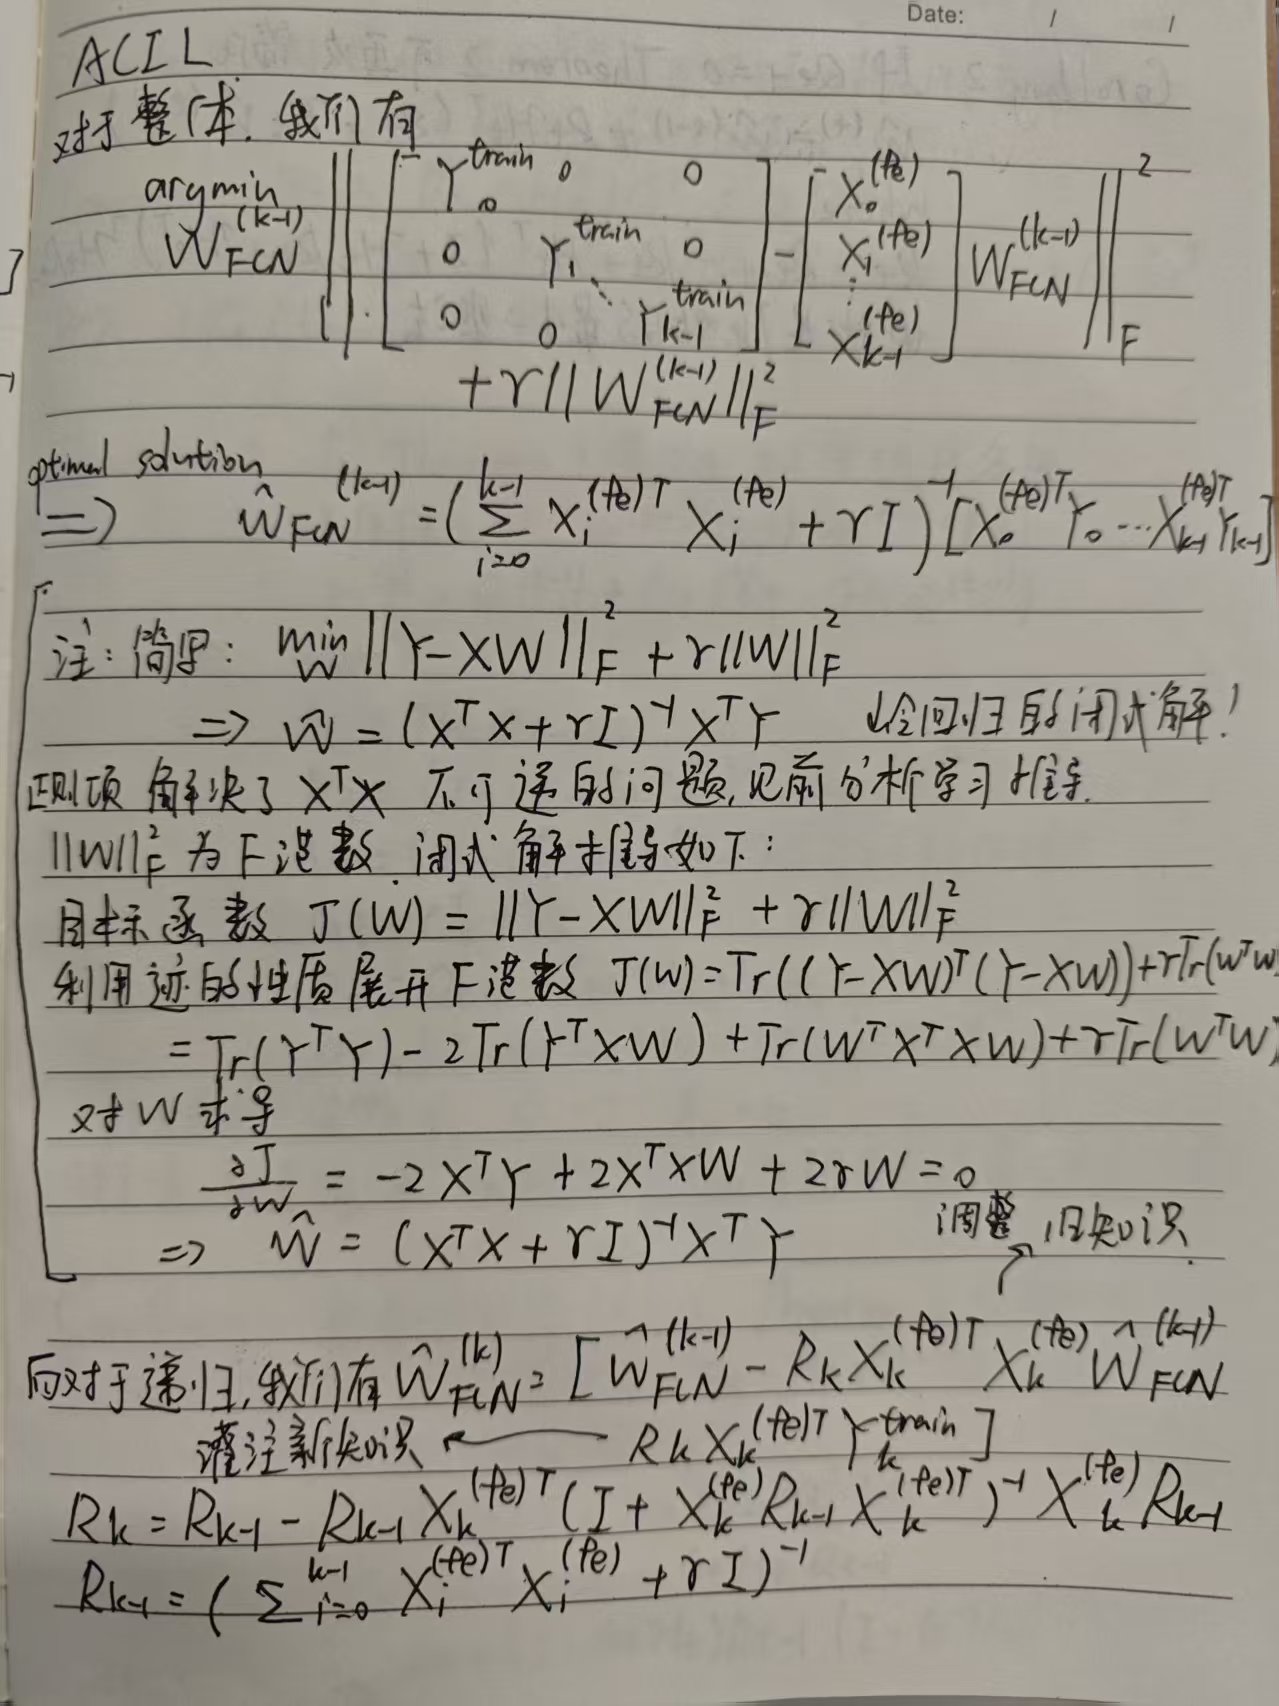 Date: / /
ACIL
对于整体，我们有
argmin W_FCN^(k-1) || [ Y_0^train 0 0 ; 0 Y_1^train 0 ; ⋱ ; 0 0 Y_k-1^train ] - [ X_0^(fe) ; X_1^(fe) ; ⋮ ; X_k-1^(fe) ] W_FCN^(k-1) ||_F^2
+ γ||W_FCN^(k-1)||_F^2
optimal solution
=> Ŵ_FCN^(k-1) = (∑_{i=0}^{k-1} X_i^(fe)T X_i^(fe) + γI)^-1 [X_0^(fe)T Y_0 ... X_k-1^(fe)T Y_k-1]
注：简写： min_W ||Y-XW||_F^2 + γ||W||_F^2
=> Ŵ = (X^T X + γI)^-1 X^T Y 岭回归的闭式解！
正则项解决了 X^T X 不可逆的问题，见前分析学习推导.
||W||_F^2 为F范数，闭式解推导如下：
目标函数 J(W) = ||Y-XW||_F^2 + γ||W||_F^2
利用迹的性质展开F范数 J(W)=Tr((Y-XW)^T(Y-XW))+γTr(W^T W)
= Tr(Y^T Y) - 2Tr(Y^T XW) + Tr(W^T X^T XW) + γTr(W^T W)
对W求导
∂J/∂W = -2X^T Y + 2X^T XW + 2γW = 0
=> Ŵ = (X^T X + γI)^-1 X^T Y
调整旧知识
而对于递归，我们有 Ŵ_FCN^(k) = [Ŵ_FCN^(k-1) - R_k X_k^(fe)T X_k^(fe) Ŵ_FCN^(k-1)
灌注新知识 ← R_k X_k^(fe)T Y_k^train ]
R_k = R_k-1 - R_k-1 X_k^(fe)T (I + X_k^(fe) R_k-1 X_k^(fe)T)^-1 X_k^(fe) R_k-1
R_k-1 = (∑_{i=0}^{k-1} X_i^(fe)T X_i^(fe) + γI)^-1